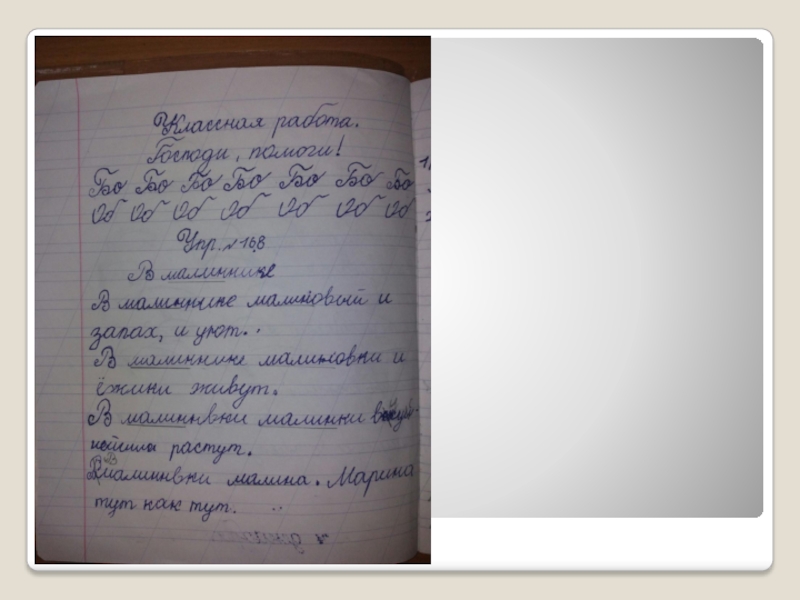 Классная работа.
Господи, помоги!
Бо Бо Бо Бо Бо Бо Бо
Об Об Об Об Об Об Об
Упр. №168
В малиннике
В малиннике малиновый и
запах, и уют.
В малиннике малиновки и
ёжики живут.
В малинивки малинки
растут.
малинивки малина. Марина
тут как тут.